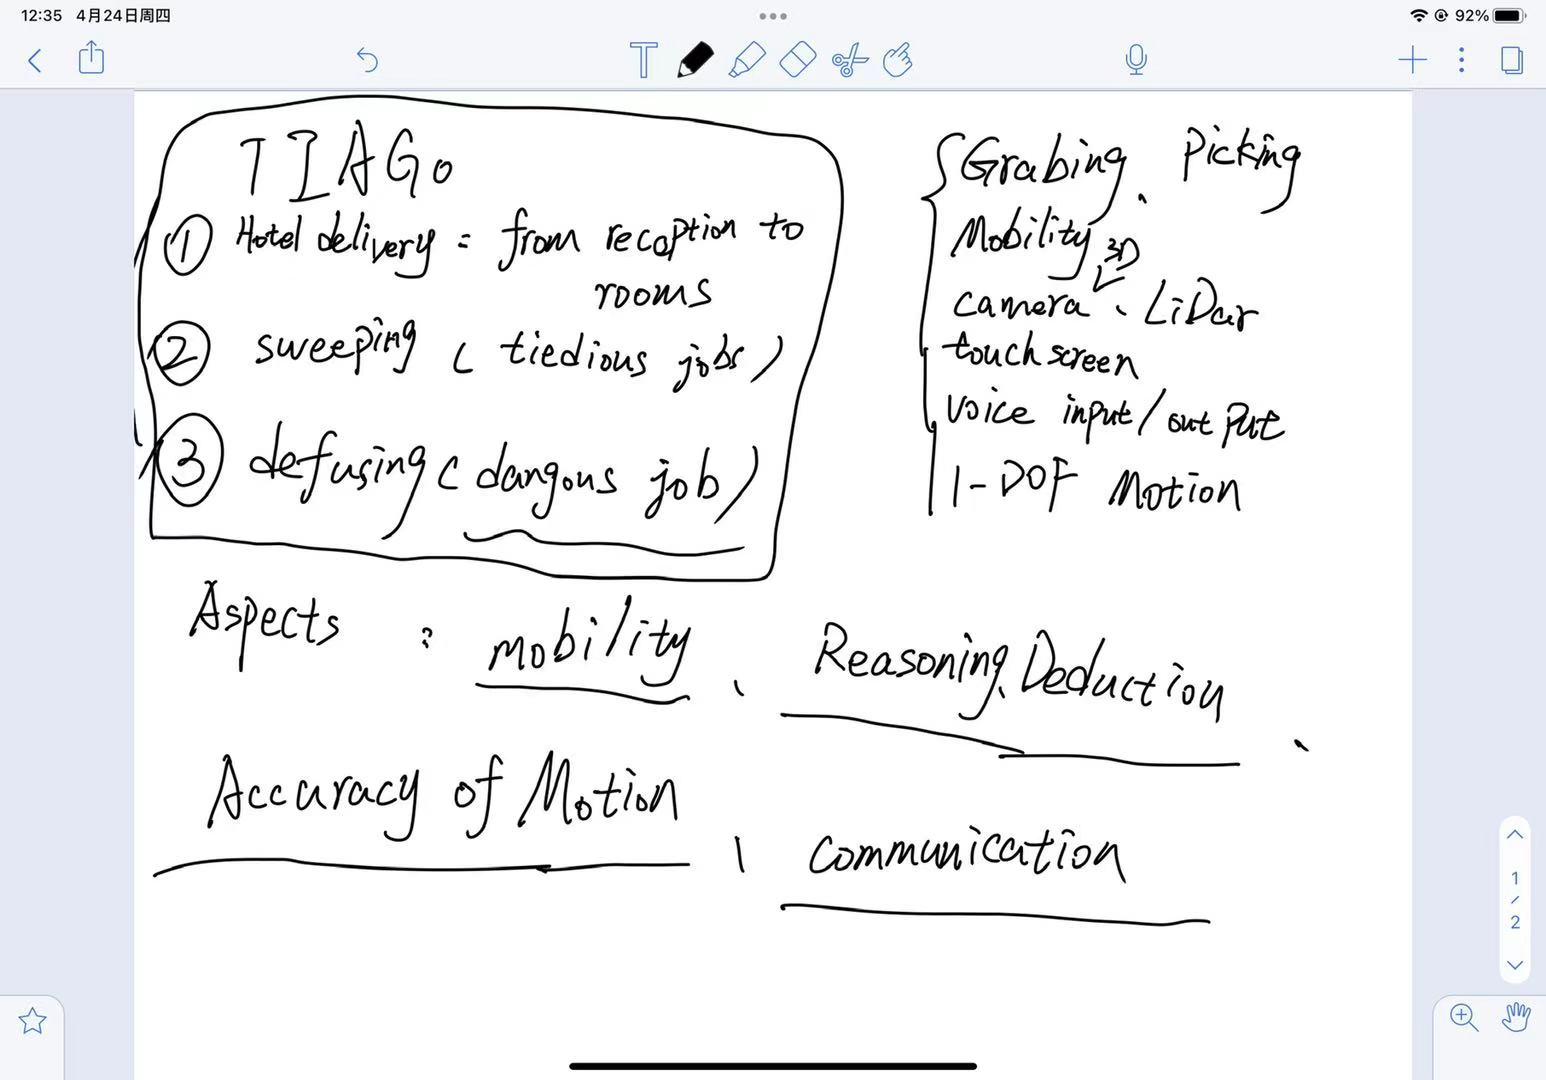 12:35 4月24日周四
92%
TIAGo
① Hotel delivery : from reception to
rooms
② sweeping ( tiedious jobs )
③ defusing ( dangous job )
Grabing、Picking
Mobility
3D
camera、LiDar
touch screen
voice input / output
1-DOF Motion
Aspects : mobility、Reasoning、Deduction、
Accuracy of Motion、communication
1
/
2